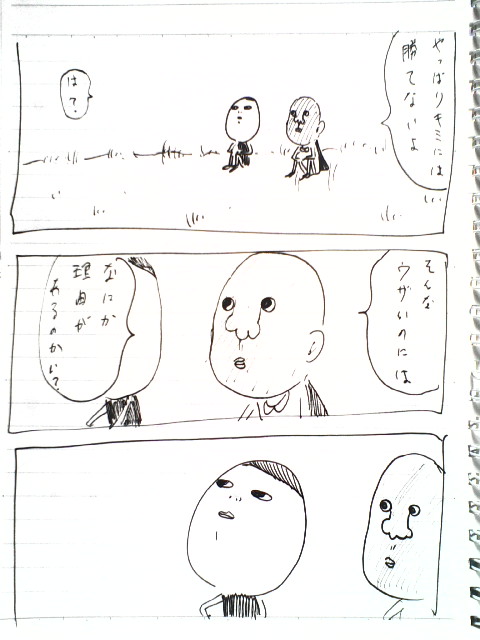 やっぱりキミには
勝てないよ
は?
そんな
ウザいのには
なにか
理由が
あるのかい?